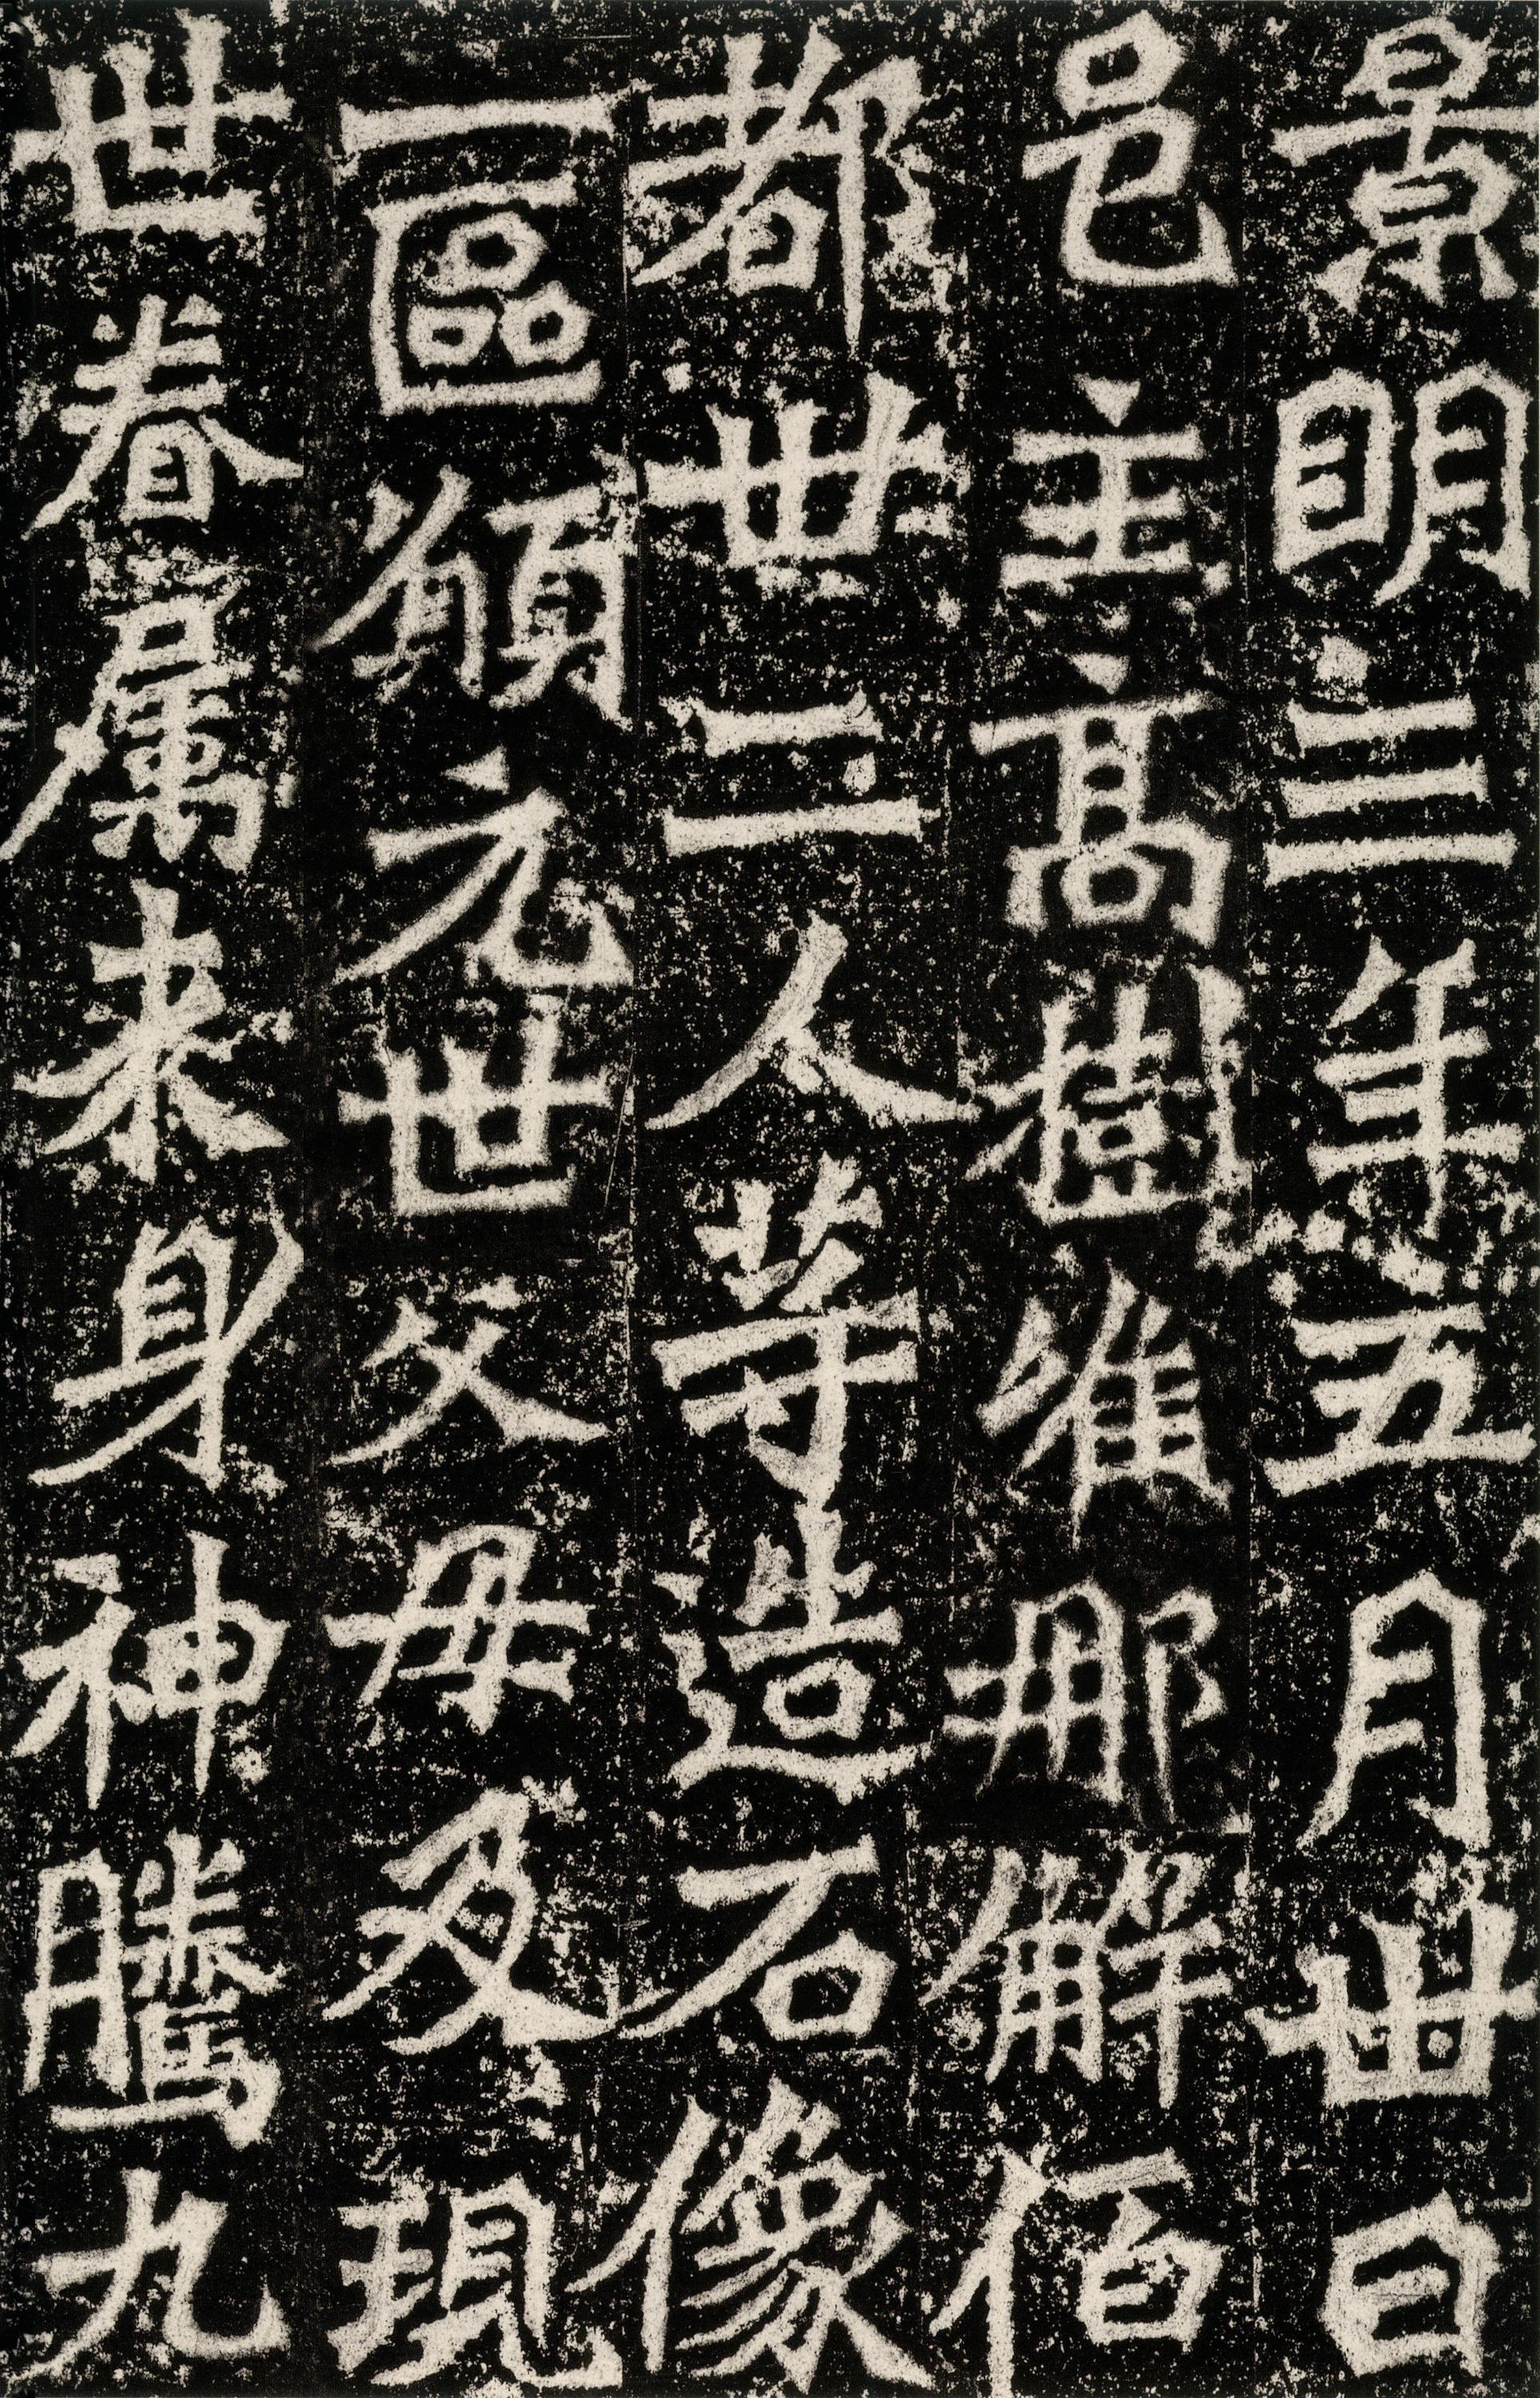 景明三年五月卅日
邑主高樹唯那解佰
都卅二人等造石像
一區願元世父母及現
世眷属来身神騰九